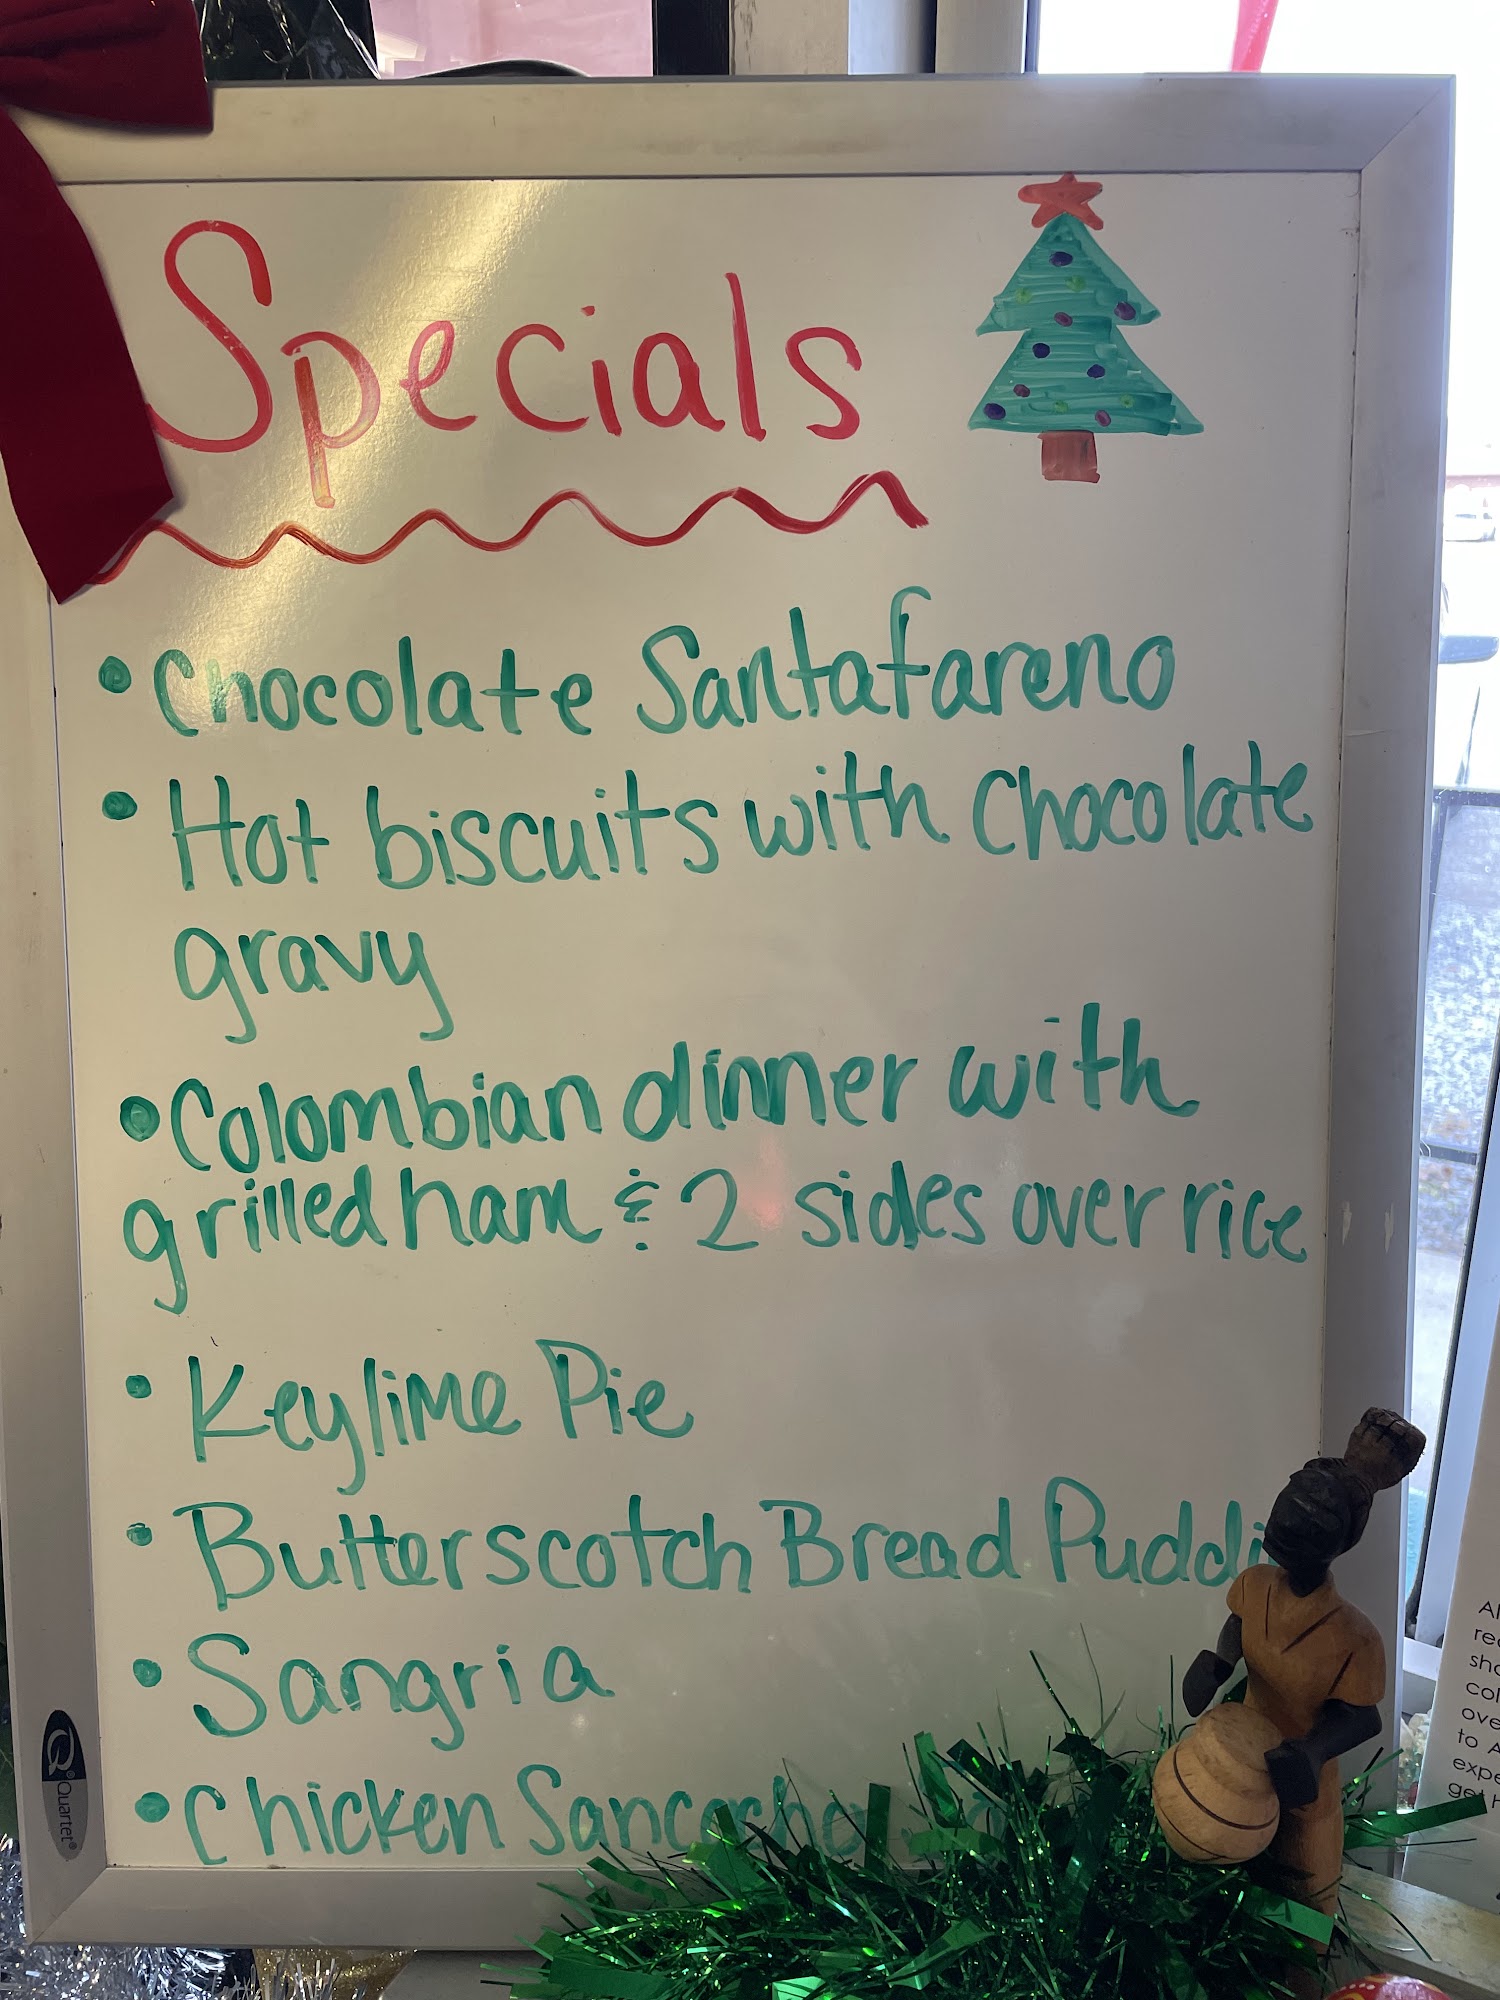 Specials
• Chocolate Santafareno
• Hot biscuits with chocolate
gravy
• Colombian dinner with
grilled ham & 2 sides over rice
• Keylime Pie
• Butterscotch Bread Puddi
• Sangria
• Chicken Sancocho
Quartet®